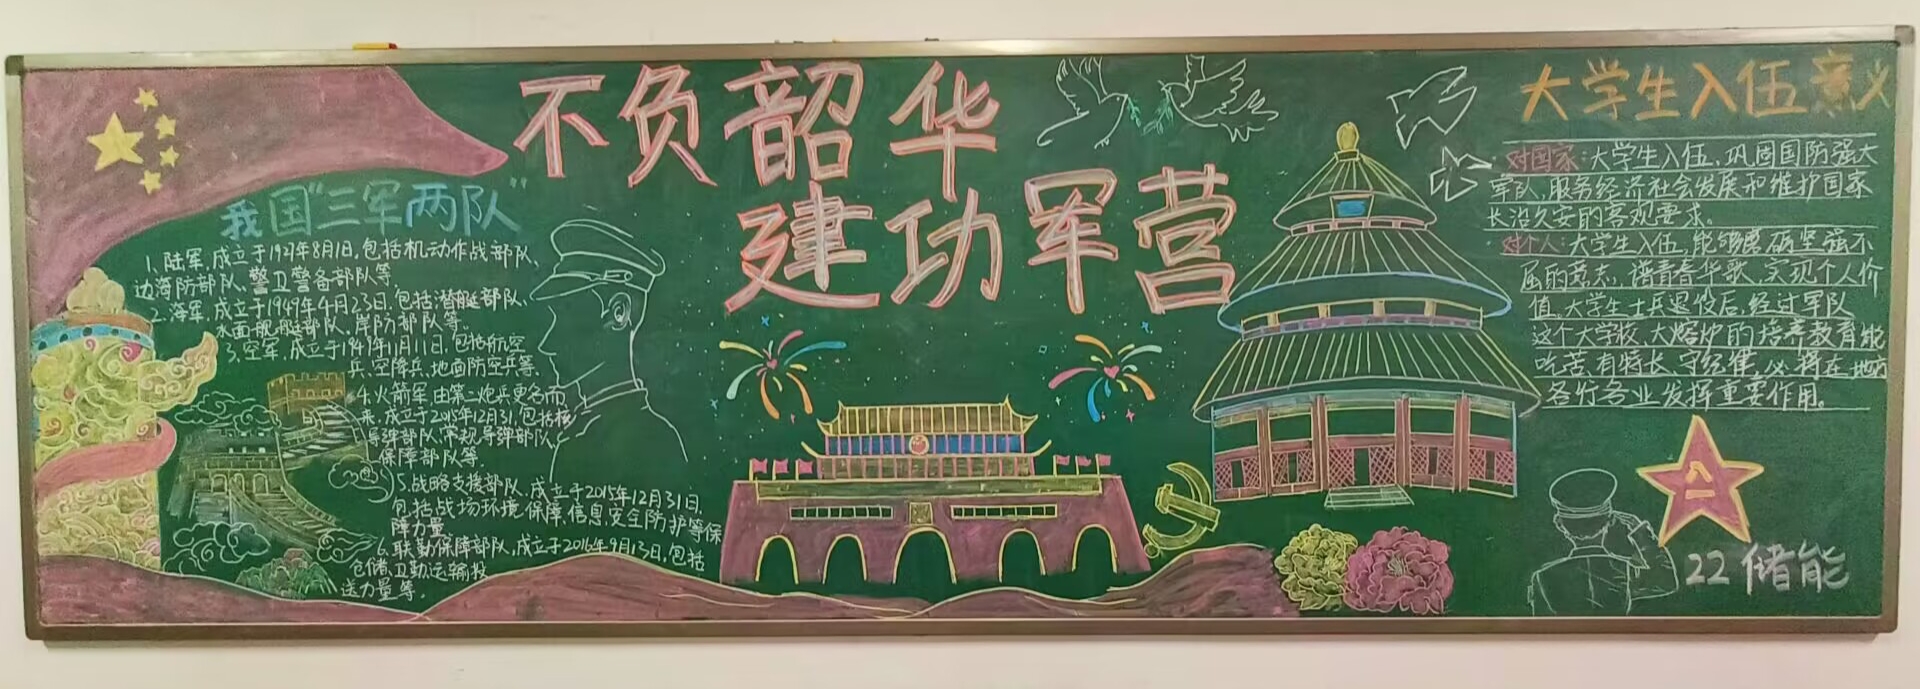 不负韶华
建功军营
我国"三军两队"
1. 陆军,成立于1927年8月1日,包括机动作战部队、
边海防部队、警卫警备部队等.
2. 海军,成立于1949年4月23日,包括潜艇部队、
水面舰艇部队、岸防部队等.
3. 空军,成立于1949年11月11日,包括航空
兵、空降兵、地面防空兵等.
4. 火箭军,由第二炮兵更名而
来,成立于2015年12月31,包括核
导弹部队,常规导弹部队
保障部队等.
5. 战略支援部队,成立于2015年12月31日,
包括战场环境保障,信息安全防护等保
障力量.
6. 联勤保障部队,成立于2016年9月13日,包括
仓储,卫勤,运输投
送力量等.
大学生入伍意义
·对国家:大学生入伍,巩固国防强大
军队,服务经济社会发展和维护国家
长治久安的客观要求。
·对个人:大学生入伍,能够磨砺坚强不
屈的意志,谱青春华歌,实现个人价
值,大学生士兵退役后,经过军队
这个大学校,大熔炉的培养教育,能
吃苦,有特长,守纪律,必将在地方
各行各业发挥重要作用。
八一
22储能